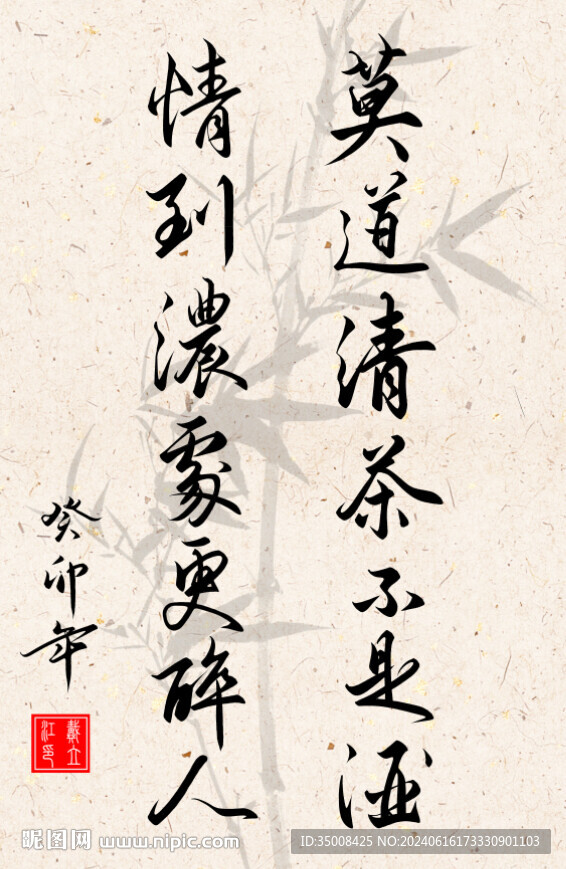 莫道清茶不是酒
情到濃處更醉人
癸卯年
戴立江印
昵图网 www.nipic.com
ID:35008425 NO:20240616173330901103